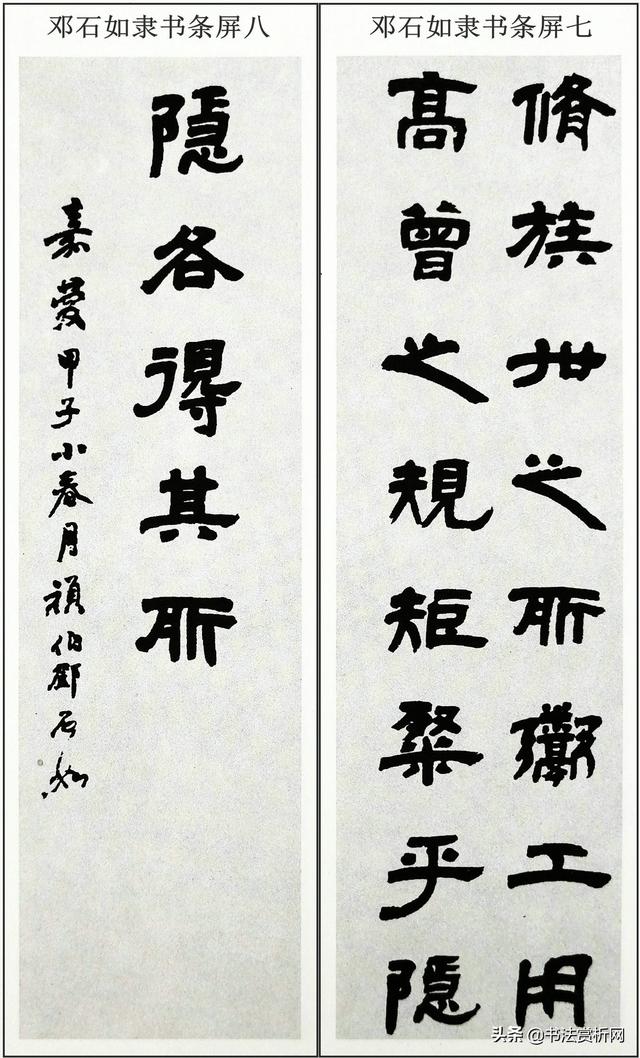 邓石如隶书条屏七
脩族世之所鬻工用
高曾之規矩粲乎隱
邓石如隶书条屏八
隱各得其所
嘉慶甲子小春月頑伯鄧石如
头条 @书法赏析网